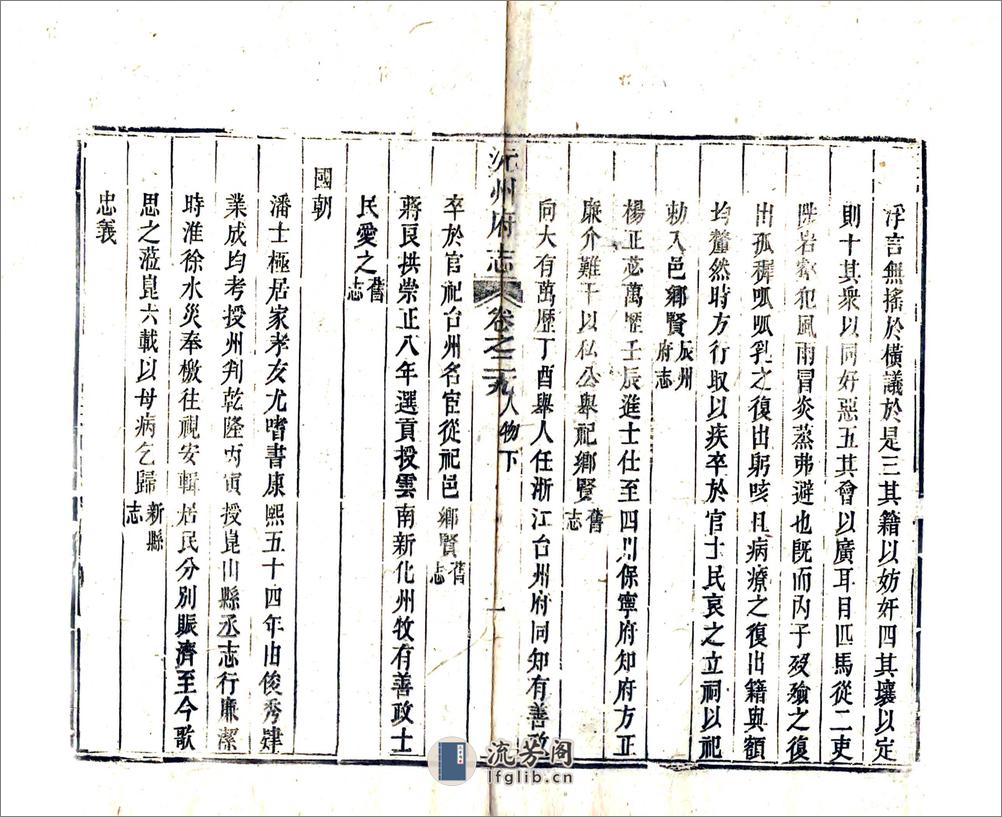 浮言無搖於橫議於是三其籍以妨奸四其壤以定
則十其衆以同好惡五其會以廣耳目匹馬從二吏
陟岩犯風雨冒炎蒸弗避也既而內子歿殮之復
出孤穉呱呱乳之復出躬咳且病療之復出籍與額
均釐然時方行取以疾卒於官士民哀之立祠以祀
勅入邑鄉賢辰州府志
楊正芯萬歷壬辰進士仕至四川保寧府知府方正
廉介難干以私公舉祀鄉賢舊志
向大有萬歷丁酉舉人任浙江台州府同知有善政
沅州府志 卷之二九 人物下 一
卒於官祀台州名宦從祀邑鄉賢舊志
蔣良拱崇正八年選貢授雲南新化州牧有善政士
民愛之舊志
國朝
潘士極居家孝友尤嗜書康熙五十四年由俊秀肄
業成均考授州判乾隆丙寅授崑山縣丞志行廉潔
時淮徐水災奉檄往視安輯居民分別賑濟至今歌
思之蒞崑六載以母病乞歸新縣志
忠義
流芳阁
lfglib.cn